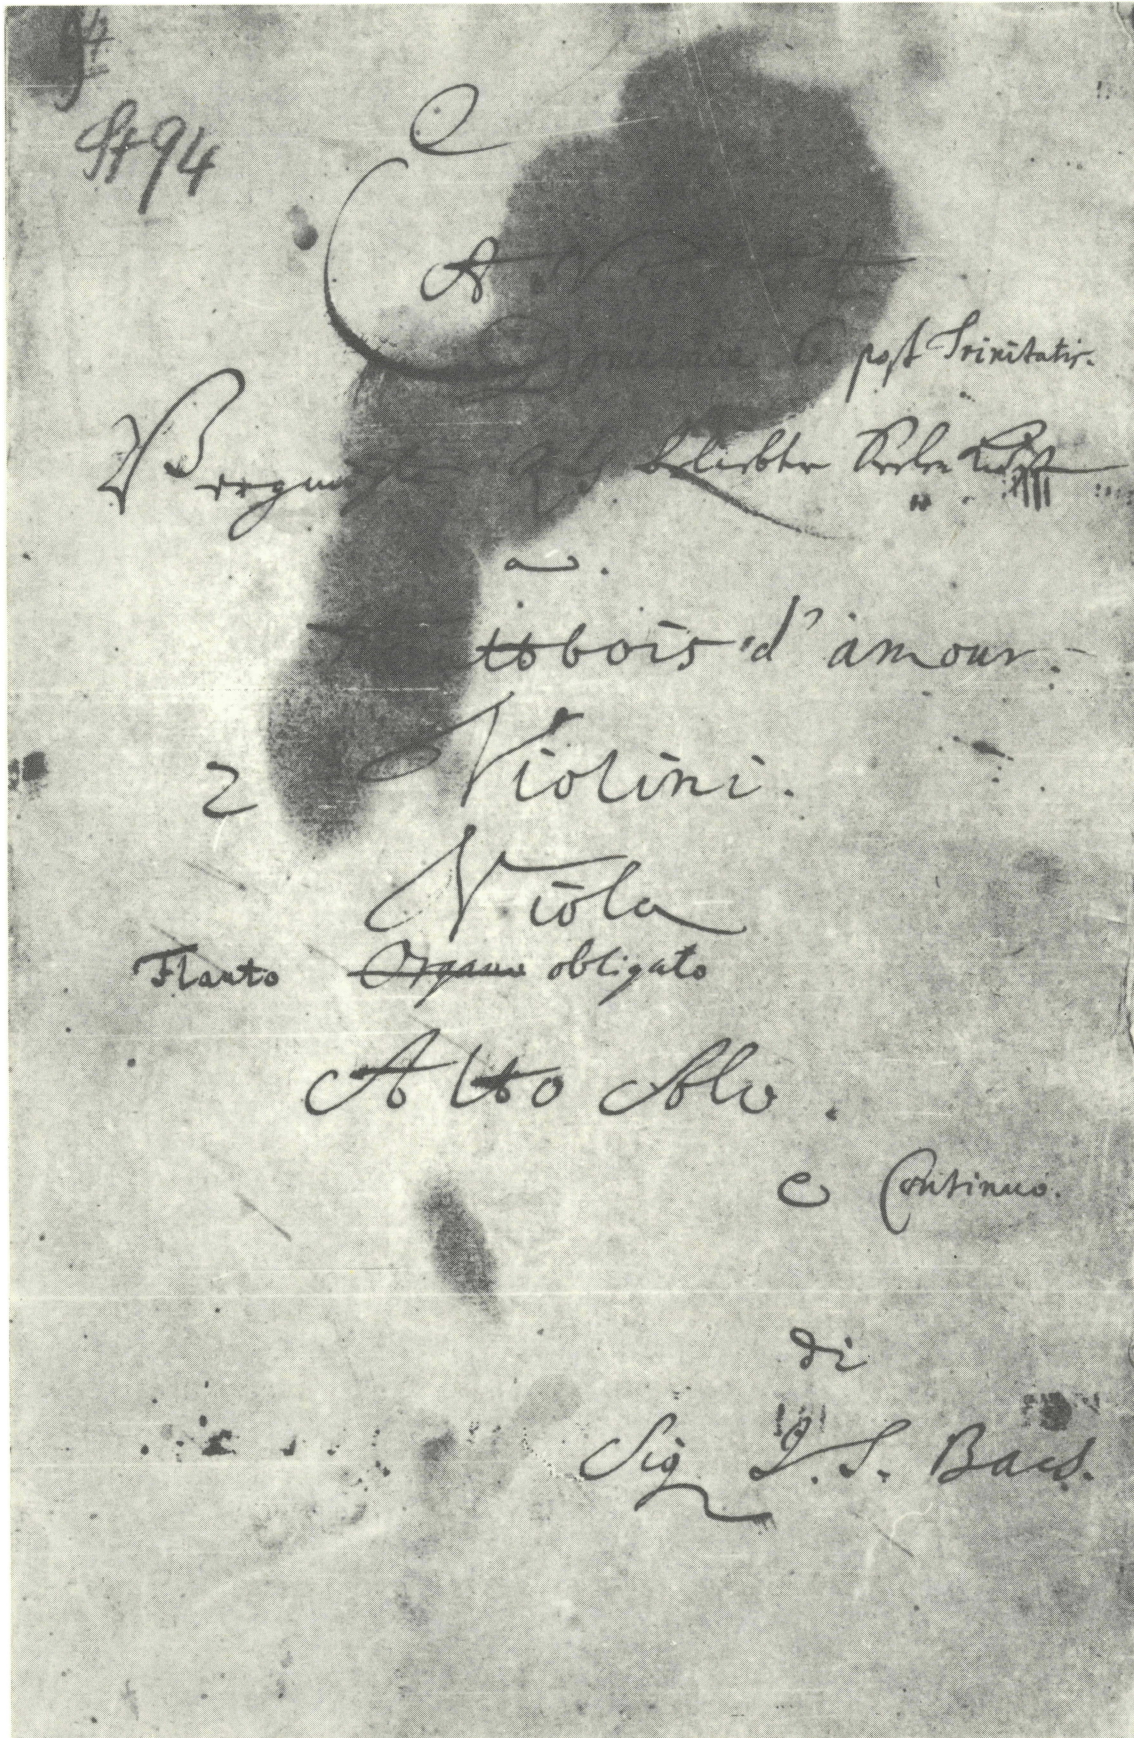 St 94
Cantata
Dominica 6. post Trinitatis.
Vergnügte Ruh beliebte Seelen Lust
a.
Hautbois d'amour.
2 Violini.
Viola
Flauto Organo obligato
Alto Solo.
e Continuo.
di
Sig J. S. Bach.